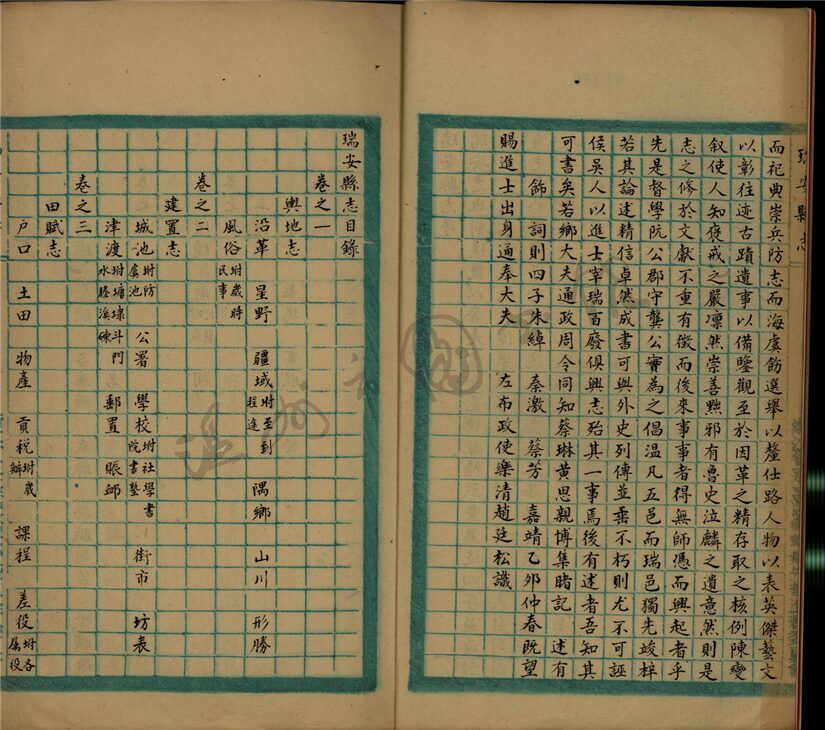 瑞安縣志
而祀典崇兵防志而海虞飭選舉以釐仕路人物以表英傑藝文
以彰往迹古蹟遺事以備鑒觀至於因革之精存取之核例陳變
叙使人知褒戒之嚴凛然崇善黜邪有魯史泣麟之遺意然則是
志之修於文獻不重有徵而後來事事者得無師憑而興起者乎
先是督學阮公郡守龔公實為之倡溫凡五邑而瑞邑獨先竣梓
若其論述精信卓然成書可與外史列傳並垂不朽則尤不可誣
侯吳人以進士宰瑞百廢俱興志殆其一事焉後有述者吾知其
可書矣若鄉大夫通政周令同知蔡琳黃思親博集睹記 述有
飾 詞則四子朱綽 秦激 蔡芳 嘉靖乙夘仲春既望
賜進士出身通奉大夫 左布政使樂清趙廷松識
瑞安縣志目錄
卷之一
輿地志
沿革 星野 疆域坿至到程途 隅鄉 山川 形勝
風俗坿歲時民事
卷之二
建置志
城池坿防虞池 公署 學校坿社學書院書塾 街市 坊表
津渡坿塘埭斗門水𨻶溪磡 郵置 賑䘏
卷之三
田賦志
戶口 土田 物產 貢稅坿歲辦 課程 差役坿各屬役